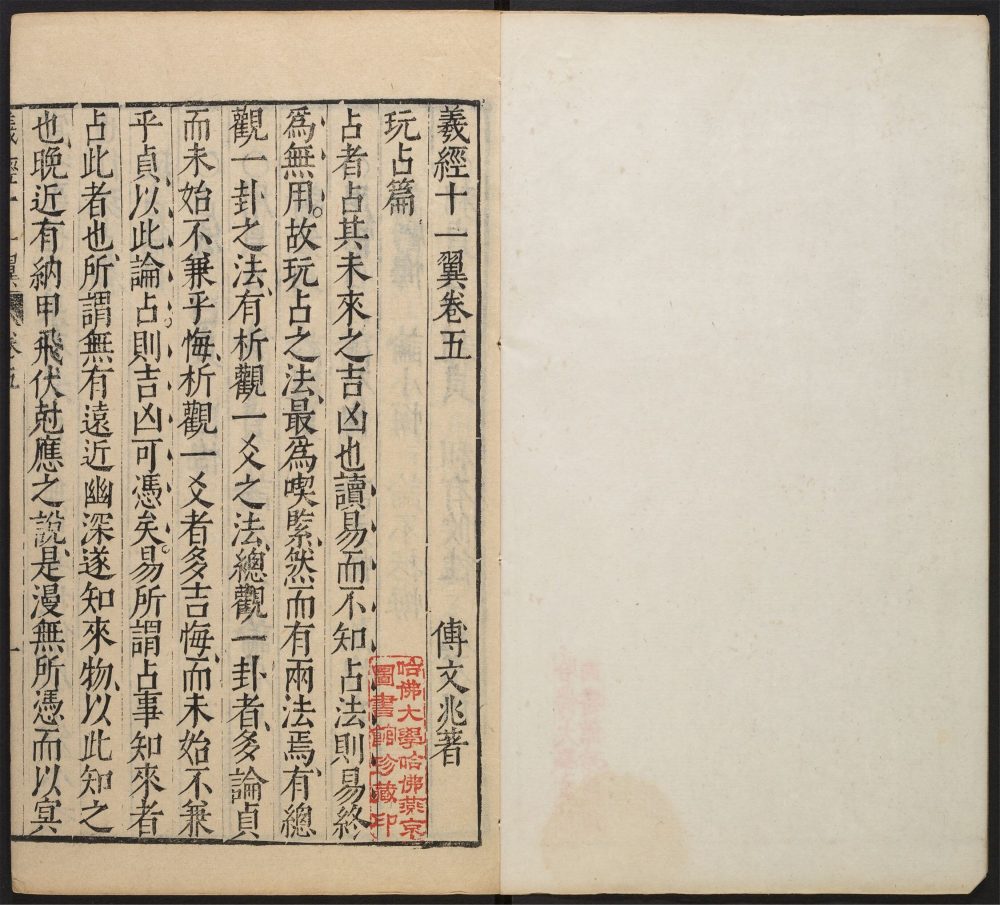 羲經十一翼卷五　傅文兆著
玩占篇
占者占其未來之吉凶也讀易而不知占法則易終
爲無用。故玩占之法、最爲喫緊、然而有兩法焉、有總
觀一卦之法、有析觀一爻之法、總觀一卦者、多論貞
而未始不兼乎悔、析觀一爻者多吉悔、而未始不兼
乎貞、以此論占、則吉凶可憑矣。易所謂占事知來者
占此者也、所謂無有遠近幽深遂知來物、以此知之
也、晚近有納甲飛伏尅應之說、是漫無所憑而以㝠
羲經十一翼 卷五 一
哈佛大學哈佛燕京
圖書館珍藏印